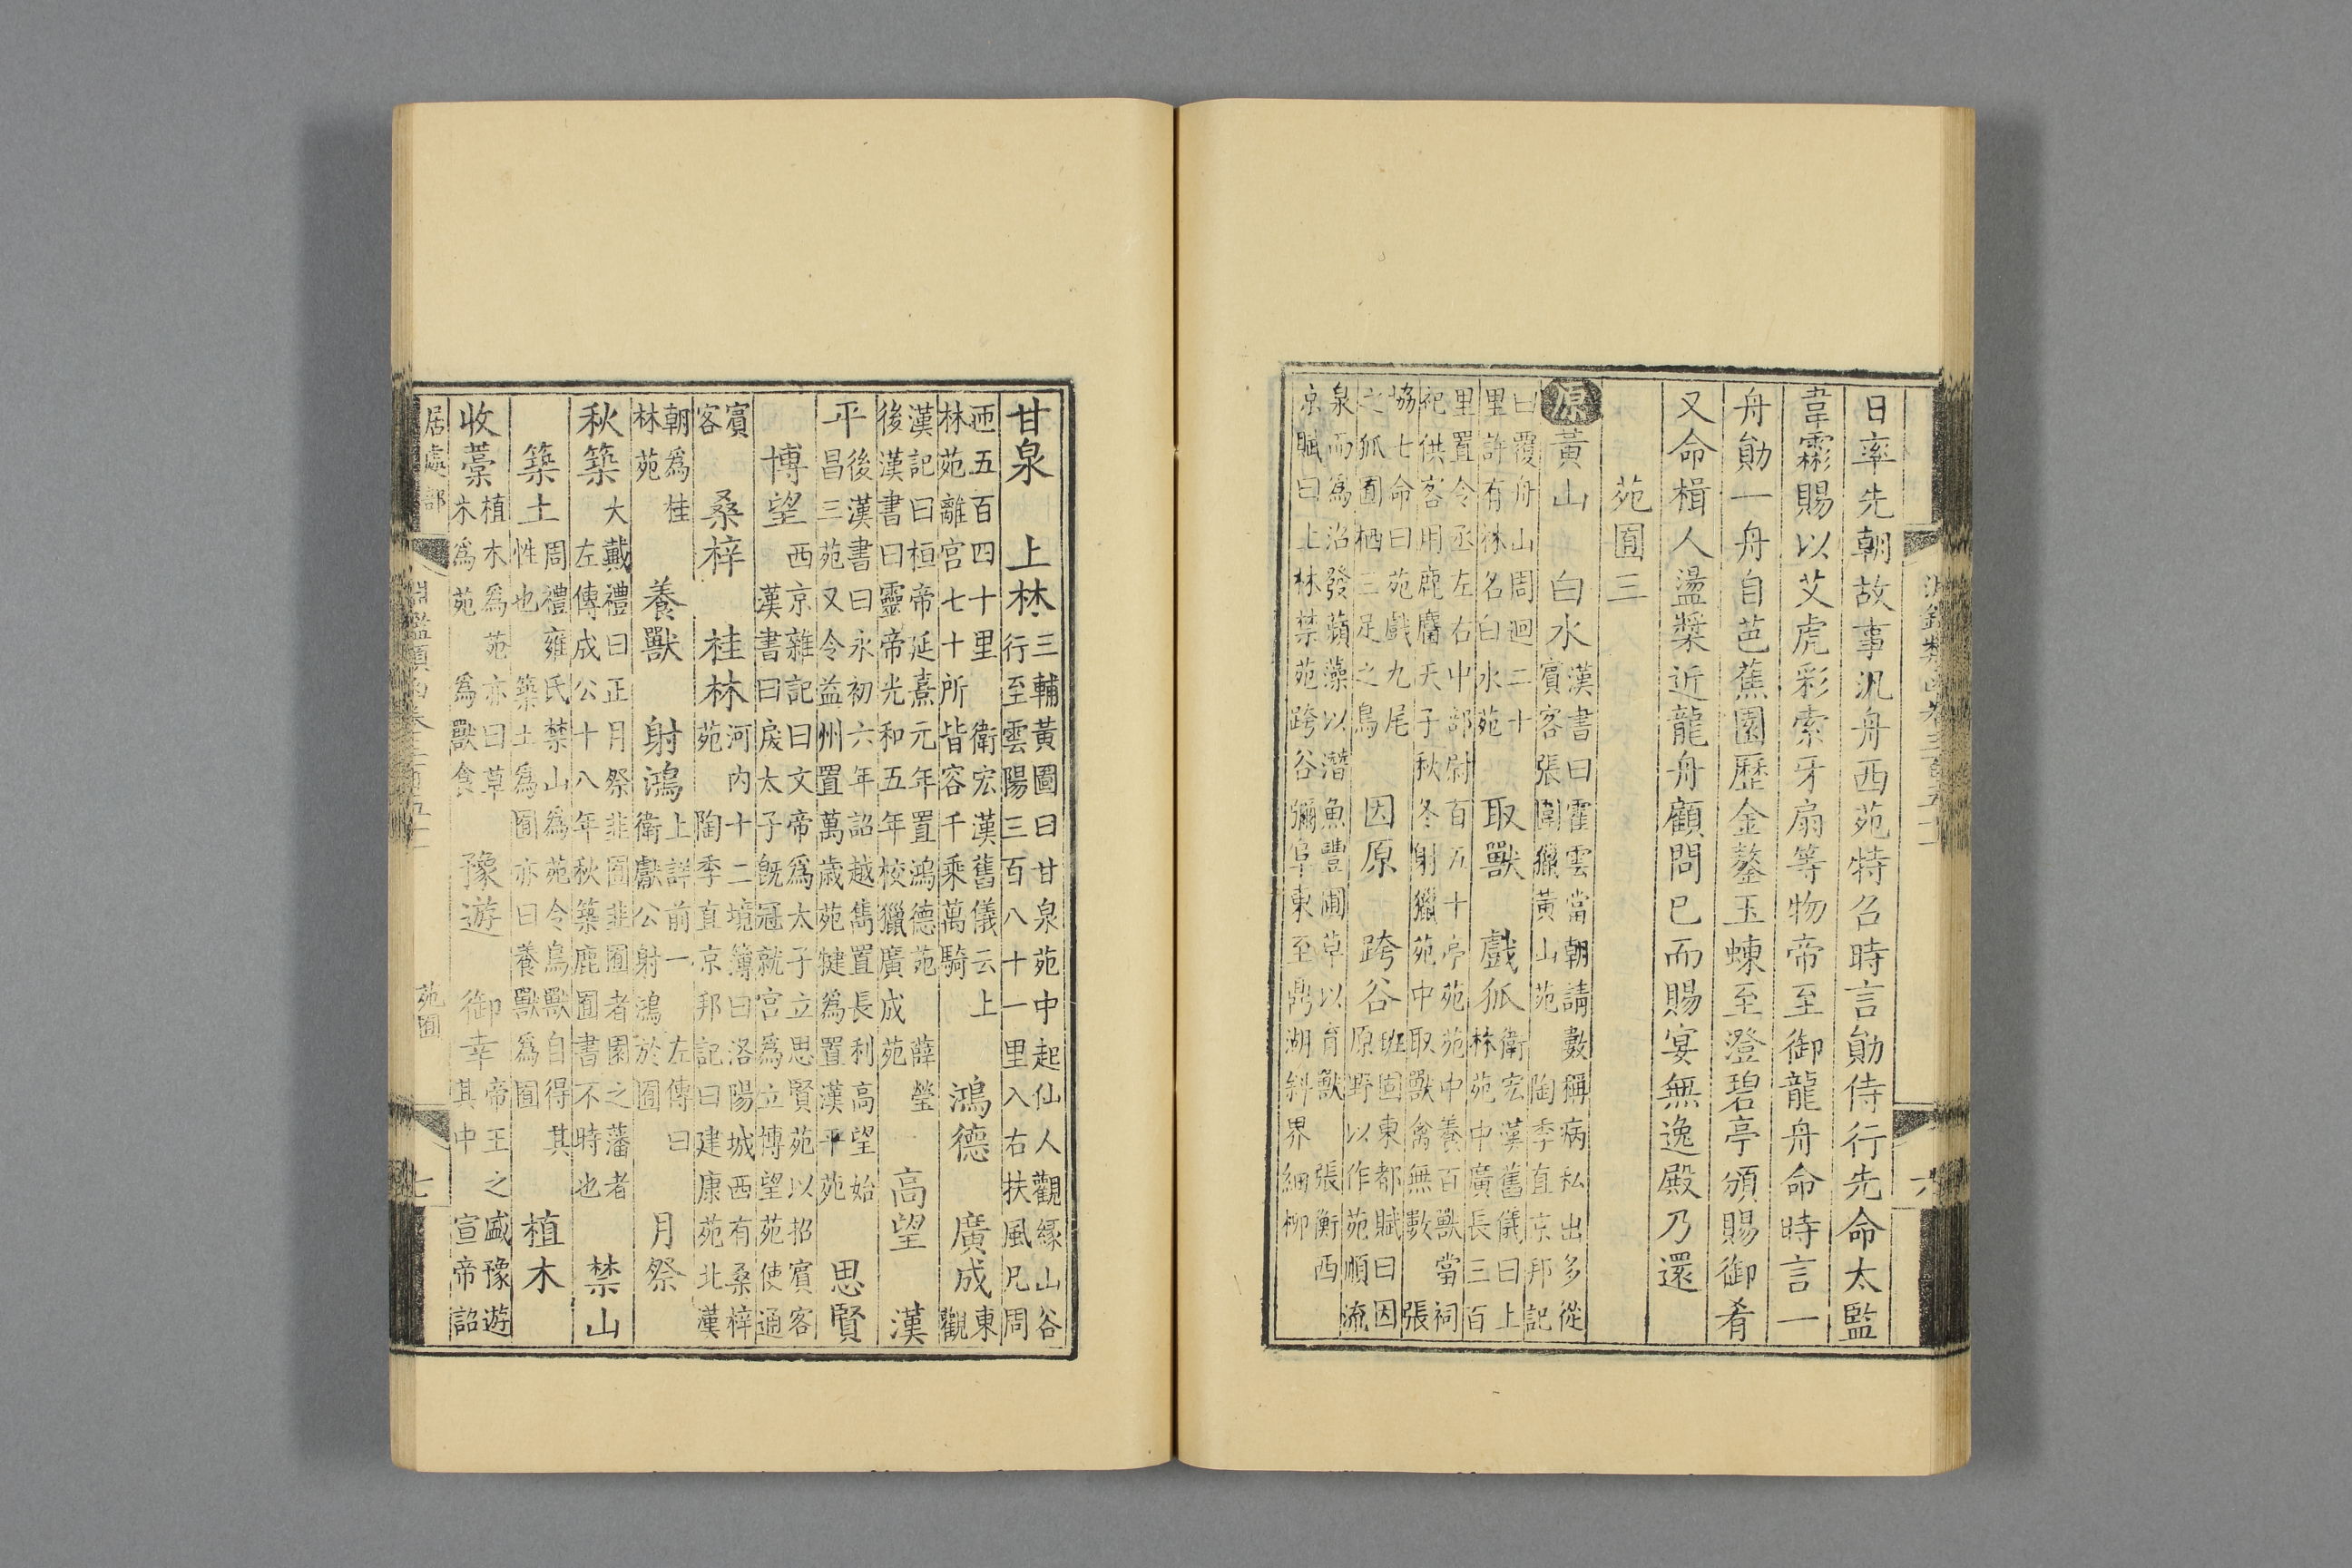 淵鑑類函卷三百五十一
六
日率先朝故事汎舟西苑特召時言勛侍行先命太監
韋霦賜以艾虎彩索牙扇等物帝至御龍舟命時言一
舟勛一舟自芭蕉園歷金鰲玉蝀至澄碧亭頒賜御肴
又命楫人盪槳近龍舟顧問已而賜宴無逸殿乃還
苑囿三
原 黃山 白水 漢書曰霍雲當朝請數稱病私出多從賓客張圍獵黃山苑 陶季直京邦記
曰覆舟山周迴二十里許有林名白水苑 取獸 戲狐 衛宏漢舊儀曰上林苑中廣長三百
里置令丞左右中部尉百五十亭苑苑中養百獸當祠祀供客用鹿麕天子秋冬射獵苑中取獸禽無數 張
協七命曰苑戲九尾之狐囿栖三足之鳥 因原 跨谷 班固東都賦曰因原野以作苑順流
泉而為沼發蘋藻以潛魚豐圃草以育獸 張衡西京賦曰上林禁苑跨谷彌阜東至鼎湖斜界細柳
甘泉 上林 三輔黃圖曰甘泉苑中起仙人觀緣山谷行至雲陽三百八十一里入右扶風凡周
迊五百四十里 衛宏漢舊儀云上林苑離宮七十所皆容千乘萬騎 鴻德 廣成 東觀
漢記曰桓帝延熹元年置鴻德苑 薛瑩後漢書曰靈帝光和五年校獵廣成苑 高望 漢
平 後漢書曰永初六年詔越雋置長利高望始昌三苑又令益州置萬歲苑犍為置漢平苑 思賢
博望 西京雜記曰文帝為太子立思賢苑以招賓客 漢書曰戾太子既冠就宮為立博望苑使通
賓客 桑梓 桂林 河内十二境簿曰洛陽城西有桑梓苑 陶季直京邦記曰建康苑北漢
朝為桂林苑 養獸 射鴻 上詳前一 左傳曰衛獻公射鴻於囿 月祭
秋築 大戴禮曰正月祭韭囿韭囿者園之藩者 左傳成公十八年秋築鹿囿書不時也 禁山
築土 周禮雍氏禁山為苑令鳥獸自得其性也 築土為囿亦曰養獸為囿 植木
收藁 植木為苑亦曰草木為苑 為獸食 豫遊 御幸 帝王之盛豫遊其中 宣帝詔
居處部 淵鑑類函卷三百五十一 苑囿 七